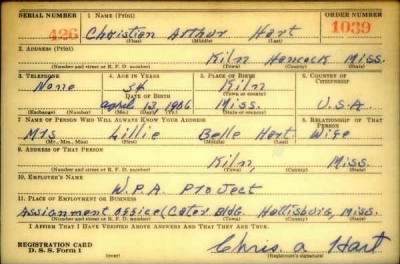 SERIAL NUMBER 1. NAME (Print) ORDER NUMBER
426 Christian Arthur Hart 1039
(First) (Middle) (Last)
2. ADDRESS (Print)
Kiln Hancock Miss.
(Number and street or R. F. D. number) (Town) (County) (State)
3. TELEPHONE 4. AGE IN YEARS 5. PLACE OF BIRTH 6. COUNTRY OF CITIZENSHIP
None 34 Kiln
(Town or county)
DATE OF BIRTH
April 13, 1906 Miss. U.S.A.
(Exchange) (Number) (Mo.) (Day) (Yr.) (State or country)
7. NAME OF PERSON WHO WILL ALWAYS KNOW YOUR ADDRESS 8. RELATIONSHIP OF THAT PERSON
Mrs Lillie Belle Hart Wife
(Mr., Mrs., Miss) (First) (Middle) (Last)
9. ADDRESS OF THAT PERSON
Kiln, Miss.
(Number and street or R. F. D. number) (Town) (County) (State)
10. EMPLOYER'S NAME
W.P.A. Project
11. PLACE OF EMPLOYMENT OR BUSINESS
Assignment Office (Cater Bldg. Hattisburg, Miss.
(Number and street or R. F. D. number) (Town) (County) (State)
I AFFIRM THAT I HAVE VERIFIED ABOVE ANSWERS AND THAT THEY ARE TRUE.
REGISTRATION CARD
D. S. S. Form 1
Chris. A Hart
(Registrant's signature)